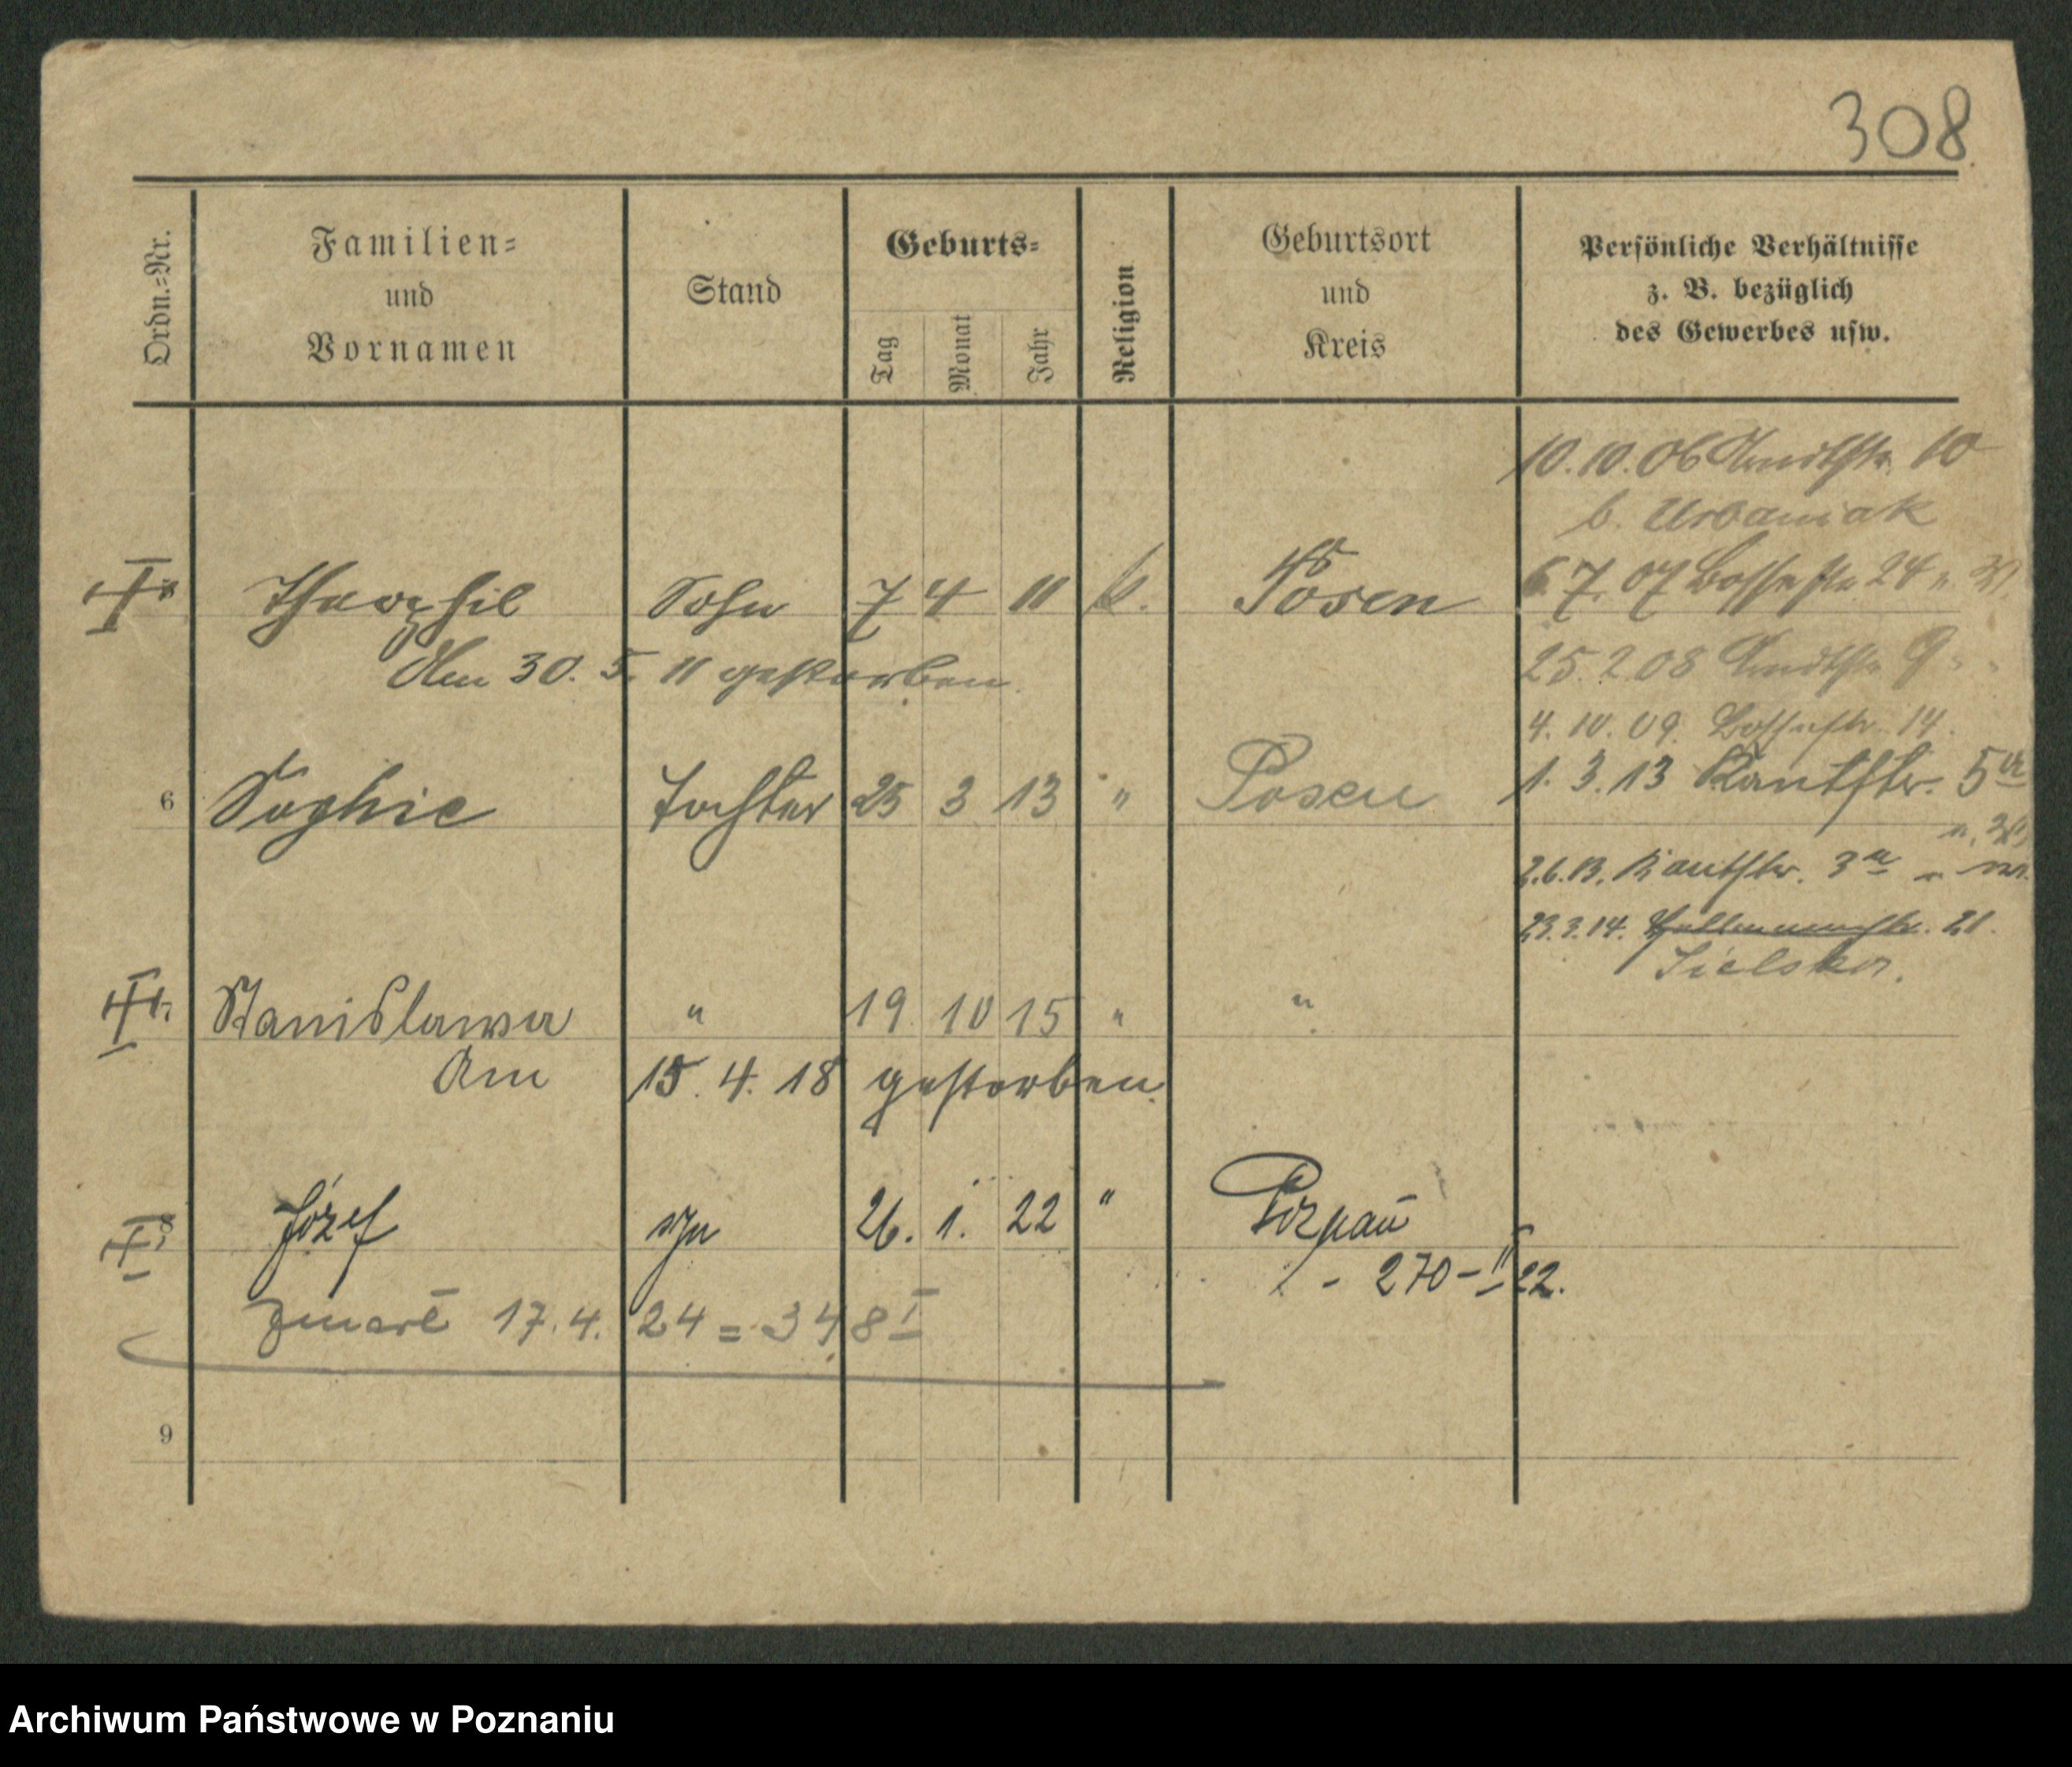 308
Ordn.-Nr.
Familien-
und
Vornamen
Stand
Geburts-
Tag
Monat
Jahr
Religion
Geburtsort
und
Kreis
Persönliche Verhältnisse
z. B. bezüglich
des Gewerbes usw.
10.10.06 10
b. Urbaniak
Theophil Sohn 7 4 11 k. Posen
6.7.07 24
Am 30. 5. 11 gestorben.
25.2.08 9
4. 10. 09. 14.
6 Sophie Tochter 25 3 13 " Posen
1. 3. 13 Kantstr. 5a
2.6.13. Kantstr. 3a
23.3.14. 21.
Stanislawa " 19 10 15 " "
Am 15. 4. 18 gestorben.
8 Józef syn 26. 1. 22 " Poznań
- 270-II 22.
zmarł 17. 4. 24 = 348 I
9
Archiwum Państwowe w Poznaniu